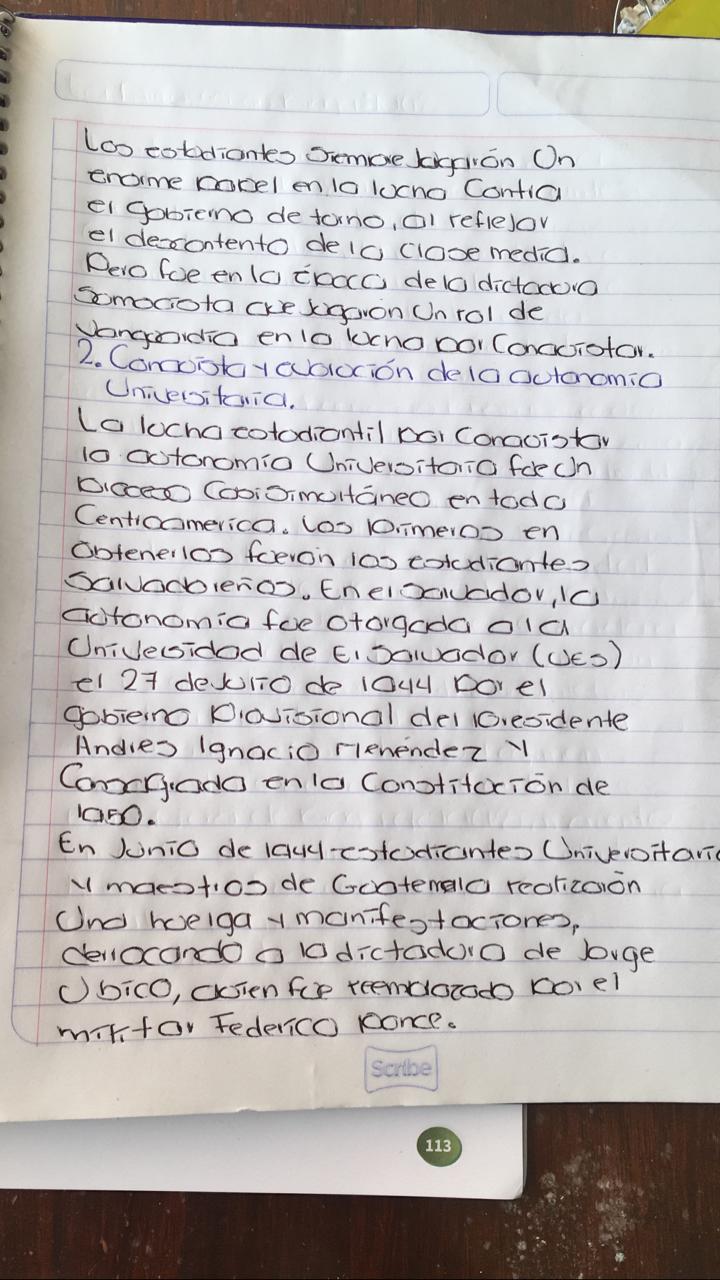 Los estudiantes siempre jugarón Un
enorme papel en la lucha Contra
el gobierno de turno, al reflejar
el descontento de la clase media.
Pero fue en la época de la dictadura
Somocista que jugarón Un rol de
vanguardia en la lucha por Conquistar.
2. Conquista y evolución de la autonomía
Universitaria.
La lucha estudiantil por Conquistar
la autonomía Universitaria fue Un
proceso Casi simultáneo en toda
Centroamerica. Los primeros en
obtenerlos fuerón los estudiantes
Salvadoreños. En el Salvador, la
autonomía fue otorgada a la
Universidad de El Salvador (UES)
el 27 de Julio de 1944 por el
gobierno Provisional del presidente
Andres Ignacio Menéndez y
Consagrada en la Constitución de
1950.
En Junio de 1944 estudiantes Universitario
y maestros de Guatemala realizarón
Una huelga y manifestaciones,
derrocando a la dictadura de Jorge
Ubico, quien fue reemplazado por el
militar Federico ponce.
Scribe
113